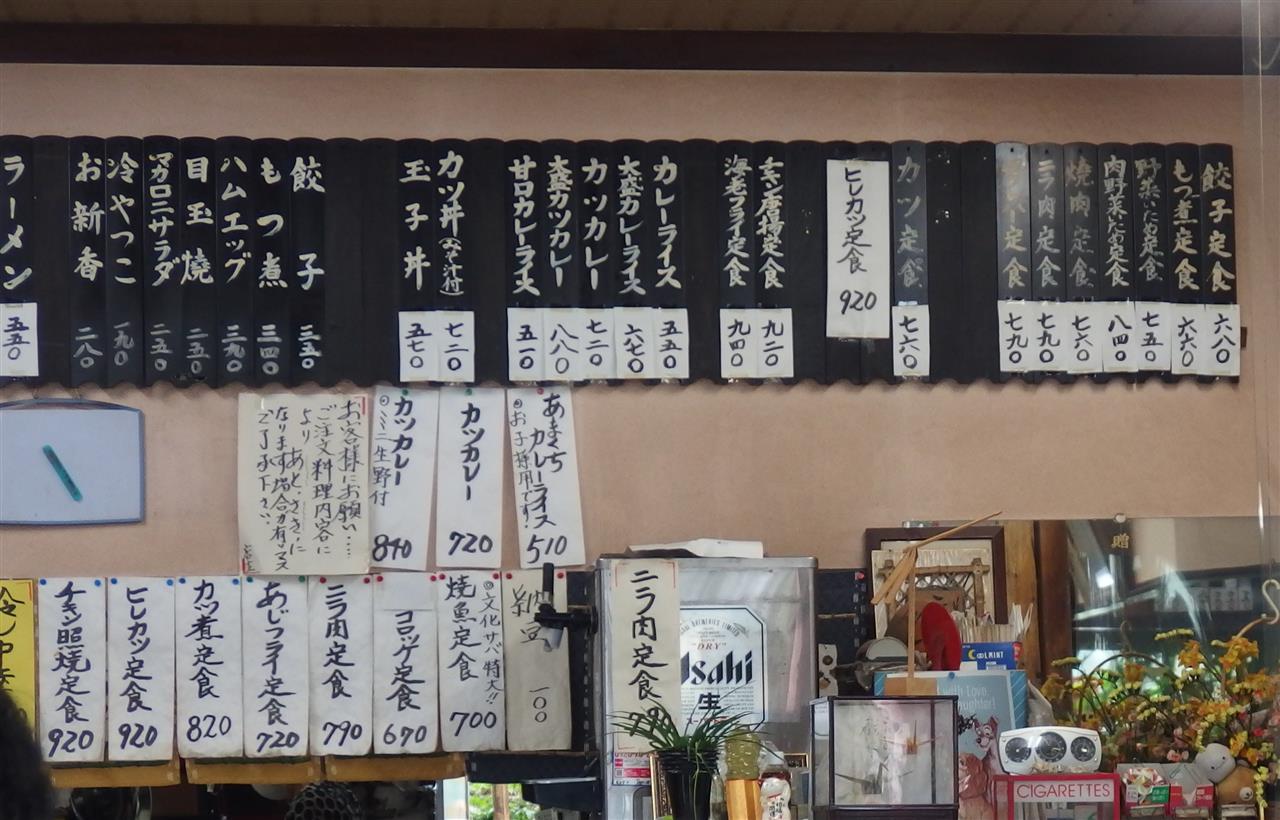 餃子定食 六八〇
もつ煮定食 六六〇
野菜いため定食 七五〇
肉野菜いため定食 八四〇
焼肉定食 七六〇
ニラ肉定食 七九〇
定食 七九〇
カツ定食 七六〇
ヒレカツ定食 920
チキン唐揚定食 九二〇
海老フライ定食 九四〇
カレーライス 五五〇
大盛カレーライス 六七〇
カツカレー 七二〇
大盛カツカレー 八八〇
甘口カレーライス 五一〇
カツ丼(みそ汁付) 七二〇
玉子丼 五七〇
餃子 三五〇
もつ煮 三四〇
ハムエッグ 三九〇
目玉焼 二五〇
マカロニサラダ 二五〇
冷やっこ 一九〇
お新香 二八〇
ラーメン 五五〇
あまくち
カレーライス
◎お子様用です!
510
カツカレー
720
カツカレー
◎ミニ生野付
840
お客様にお願い……
ご注文料理内容に
より あとさきに
なります場合が有りマス
ご了承下さい。
店主
納豆 一〇〇
◎文化サバ特大!!
焼魚定食
700
コロッケ定食
670
ニラ肉定食
790
あじフライ定食
720
カツ煮定食
820
ヒレカツ定食
920
チキン照焼定食
920
ニラ肉定食
"DRY"
Asahi
生
贈
COOLMINT
With Love,
CIGARETTES